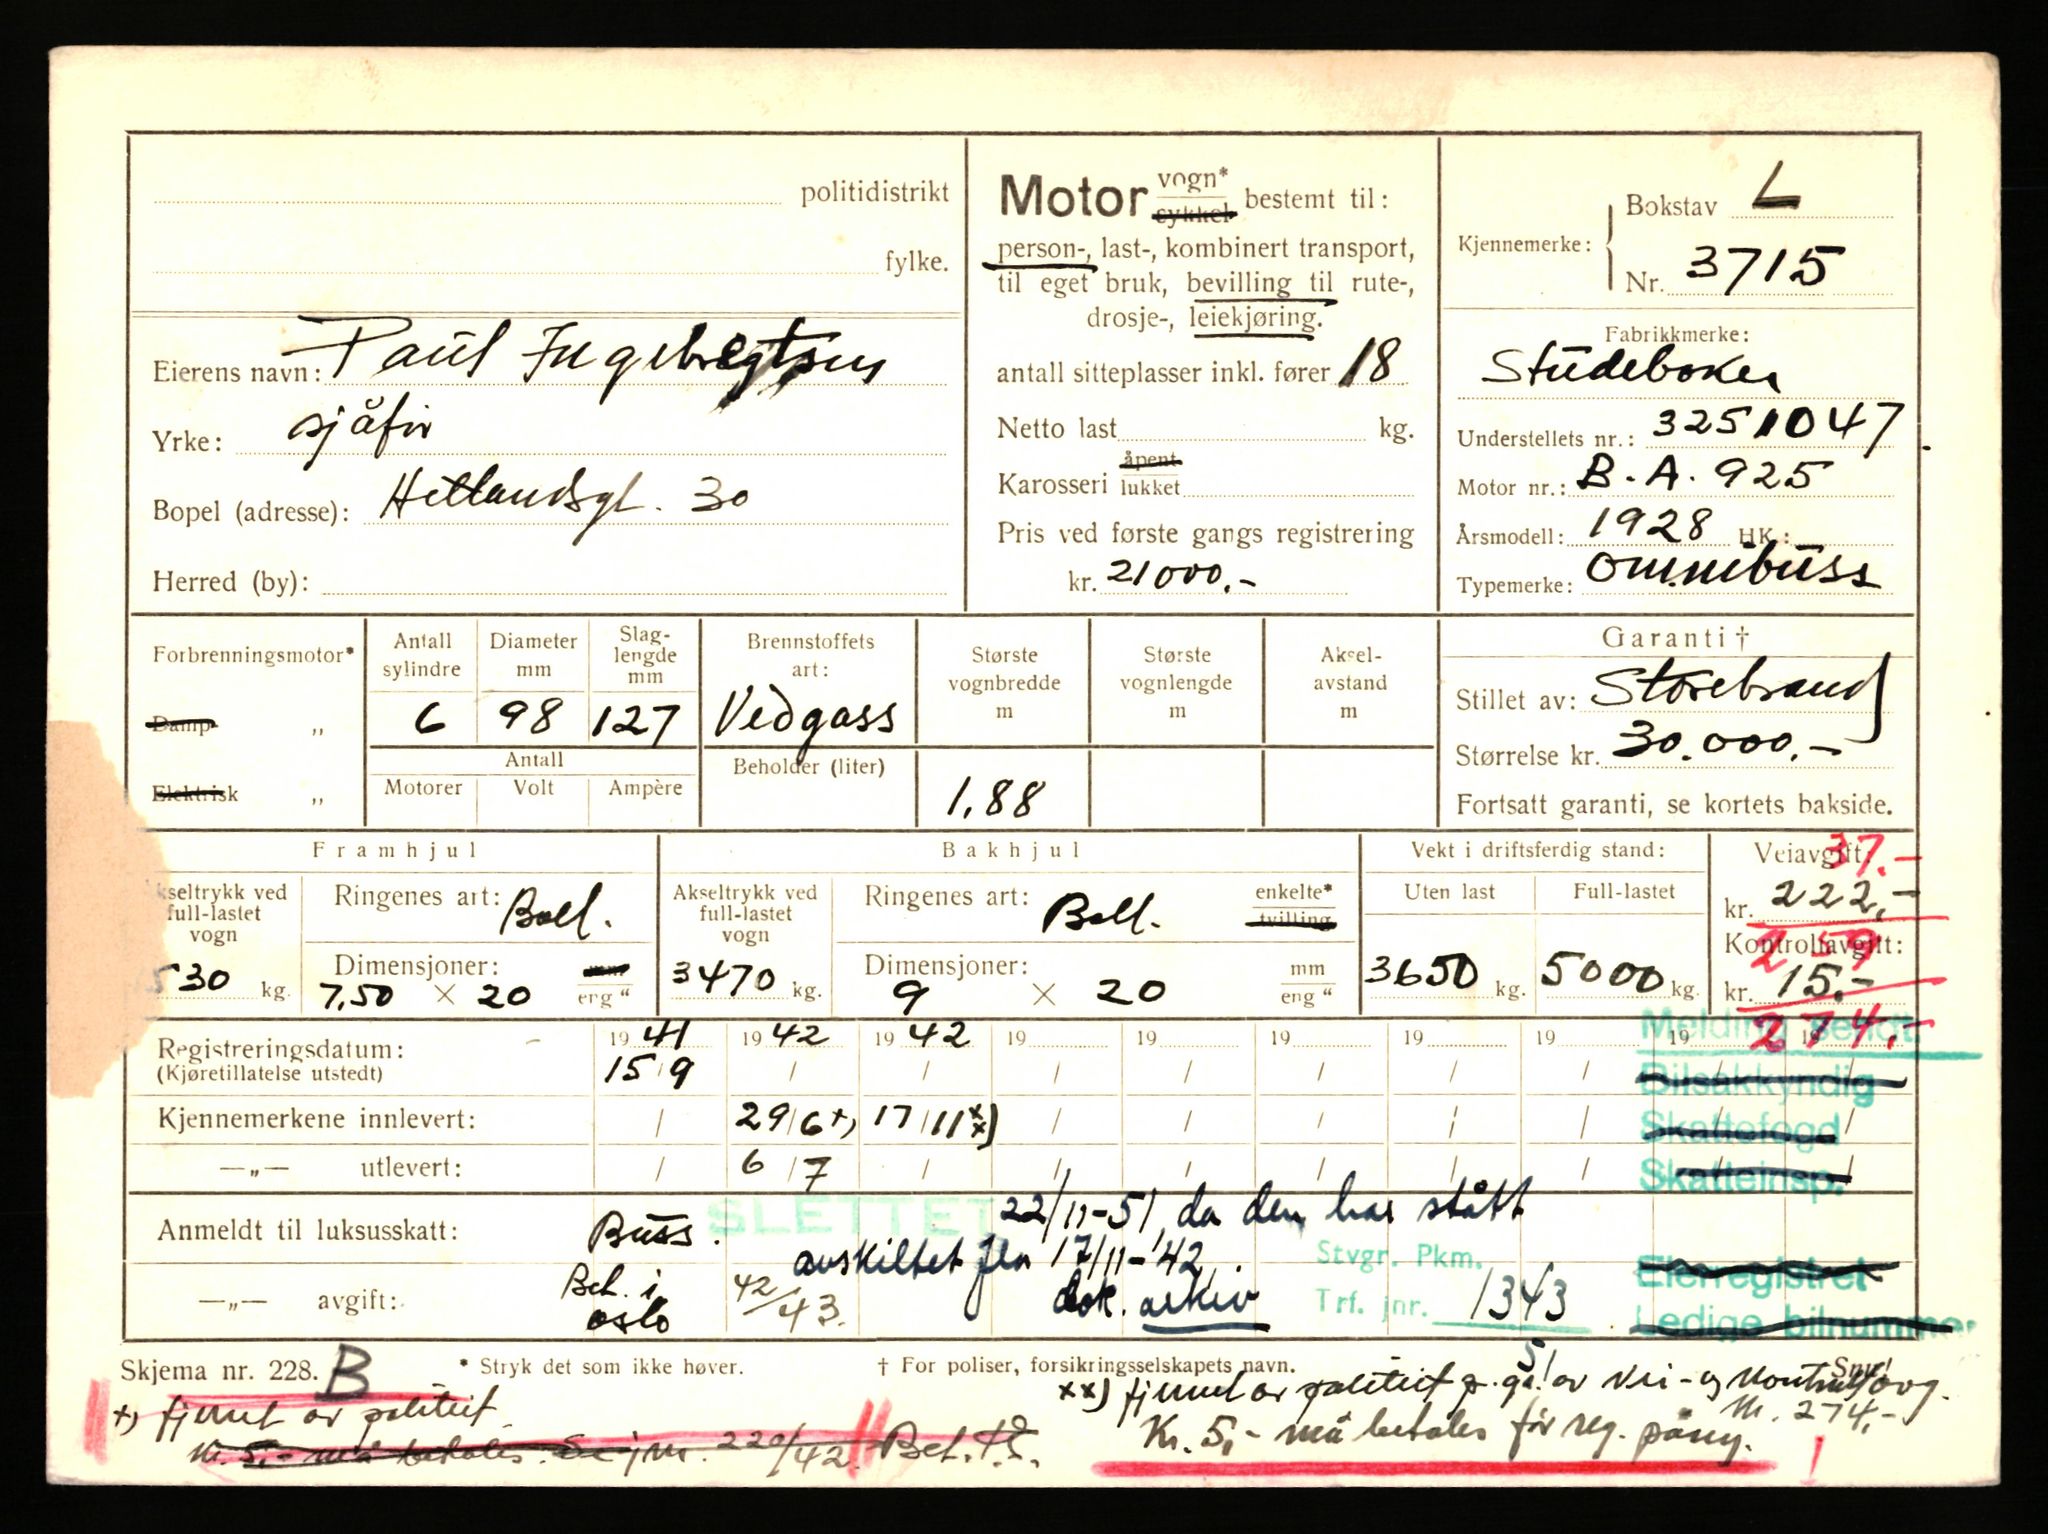 politidistrikt
fylke.
Eierens navn: Paul Ingebregtsen
Yrke: sjåfør
Bopel (adresse): Hetlandsgt. 30
Herred (by):
Motor vogn* sykkel bestemt til:
person-, last-, kombinert transport,
til eget bruk, bevilling til rute-,
drosje-, leiekjøring.
antall sitteplasser inkl. fører 18
Netto last kg.
Karosseri åpent lukket
Pris ved første gangs registrering
kr. 21000.-
Kjennemerke: Bokstav L
Nr. 3715
Fabrikkmerke:
Studebaker
Understellets nr.: 3251047
Motor nr.: B.A. 925
Årsmodell: 1928 HK.:
Typemerke: Omnibuss
Forbrenningsmotor*
Damp „
Elektrisk „
Antall sylindre
6
Diameter mm
98
Slag-lengde mm
127
Antall
Motorer Volt Ampère
Brennstoffets art:
Vedgass
Beholder (liter)
Største vognbredde m
1,88
Største vognlengde m
Aksel-avstand m
Garanti †
Stillet av: Storebrand
Størrelse kr. 30.000,-
Fortsatt garanti, se kortets bakside.
Framhjul
kseltrykk ved full-lastet vogn
530 kg.
Ringenes art: Ball.
Dimensjoner: mm
7,50 × 20 eng "
Bakhjul
Akseltrykk ved full-lastet vogn
3470 kg.
Ringenes art: Ball. enkelte* tvilling
Dimensjoner: mm
9 × 20 eng "
Vekt i driftsferdig stand:
Uten last Full-lastet
3650 kg. 5000 kg.
Veiavgift: 37.-
kr. 222,-
259
Kontrollavgift:
kr. 15.-
274.-
Registreringsdatum: 1941 1942 1942 19 19 19 19 19 19 19
(Kjøretillatelse utstedt) 15/9
Kjennemerkene innlevert: 29/6 x) 17/11 xx)
—„— utlevert: 6/7
Melding sendt:
Bilsakkyndig
Skattefogd
Skatteinsp.
Eierregistret
Ledige bilnummer
Anmeldt til luksusskatt: Buss.
SLETTET 22/11-51 da den har stått
avskiltet fra 17/11-42.
dok. arkiv
—„— avgift: Bet. i oslo 42/43.
Stvgr. Pkm.
Trf. jnr. 1343
51
Skjema nr. 228. B * Stryk det som ikke høver. † For poliser, forsikringsselskapets navn. Snu!
x) fjernet av politiet
kr. 5,- må betales. Se jnr. 220/42. Bet.
xx) fjernet av politiet p. ga. av vei- og kontrollavg.
kr. 274,-
Kr. 5,- må betales før reg. påny. !